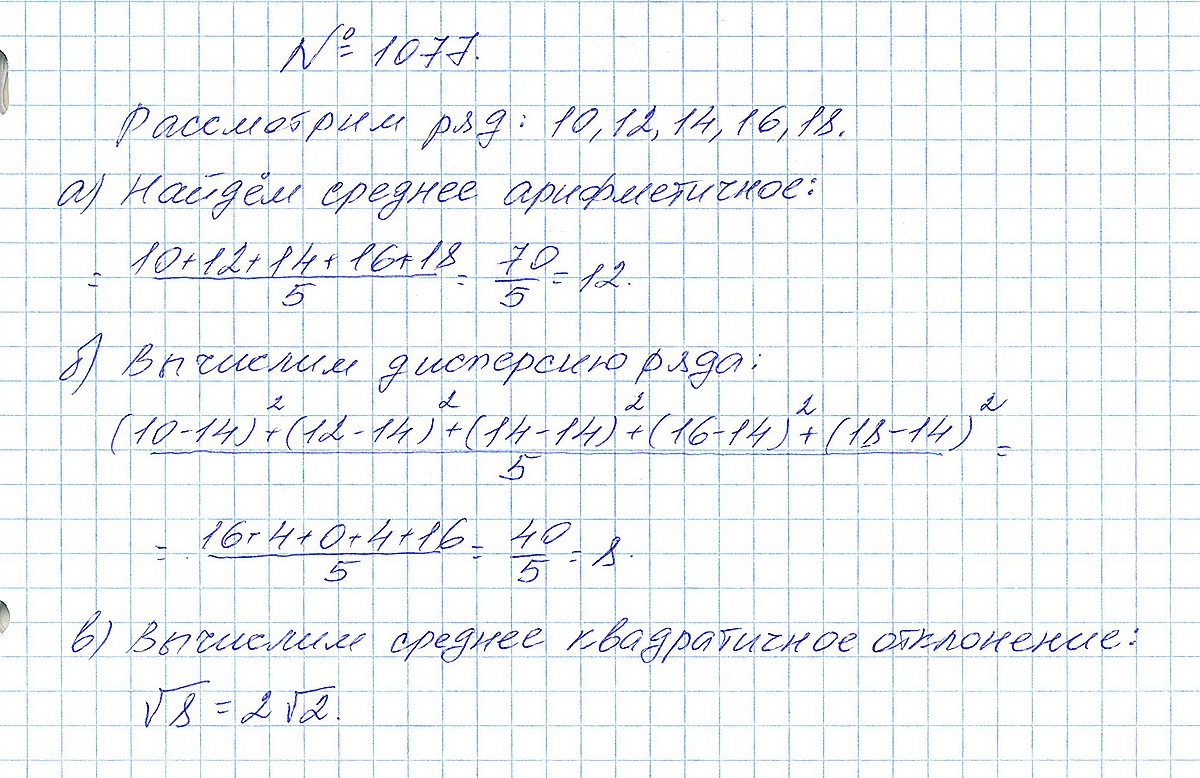 № 1077.
Рассмотрим ряд: 10, 12, 14, 16, 18.
а) Найдём среднее арифметичное:
= (10+12+14+16+18)/5 = 70/5 = 12.
б) Вычислим дисперсию ряда:
((10-14)²+(12-14)²+(14-14)²+(16-14)²+(18-14)²)/5 =
= (16+4+0+4+16)/5 = 40/5 = 8.
в) Вычислим среднее квадратичное отклонение:
√8 = 2√2.